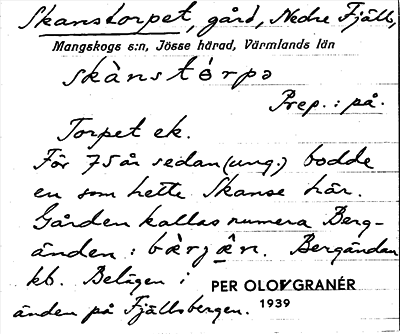 Skanstorpet, gård, Nedre Fjäll,
Mangskogs s:n, Jösse härad, Värmlands län
skànstórpə
Prep.: på.
Torpet ek.
För 75 år sedan (ung.) bodde
en som hette Skanse här.
Gården kallas numera Berg-
änden: bærjæn. Bergändan
kb. Belägen i
änden på Fjällsbergen.
PER OLOV GRANÉR
1939